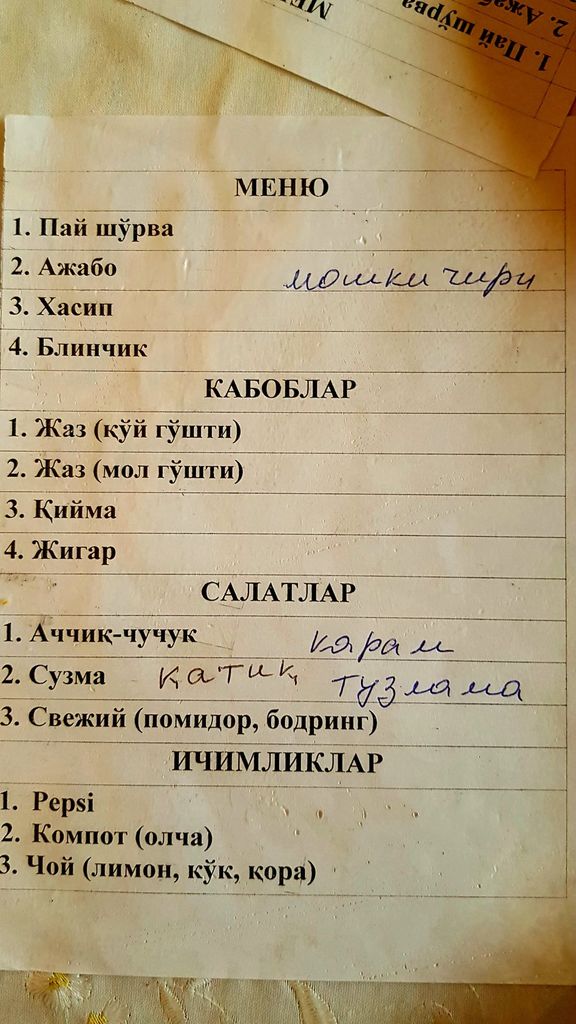 МЕНЮ
1. Пай шўрва
2. Ажаб
МЕНЮ
1. Пай шўрва
2. Ажабо мошкичири
3. Хасип
4. Блинчик
КАБОБЛАР
1. Жаз (қўй гўшти)
2. Жаз (мол гўшти)
3. Қийма
4. Жигар
САЛАТЛАР
1. Аччиқ-чучук карам
2. Сузма қатиқ тузлама
3. Свежий (помидор, бодринг)
ИЧИМЛИКЛАР
1. Pepsi
2. Компот (олча)
3. Чой (лимон, кўк, қора)